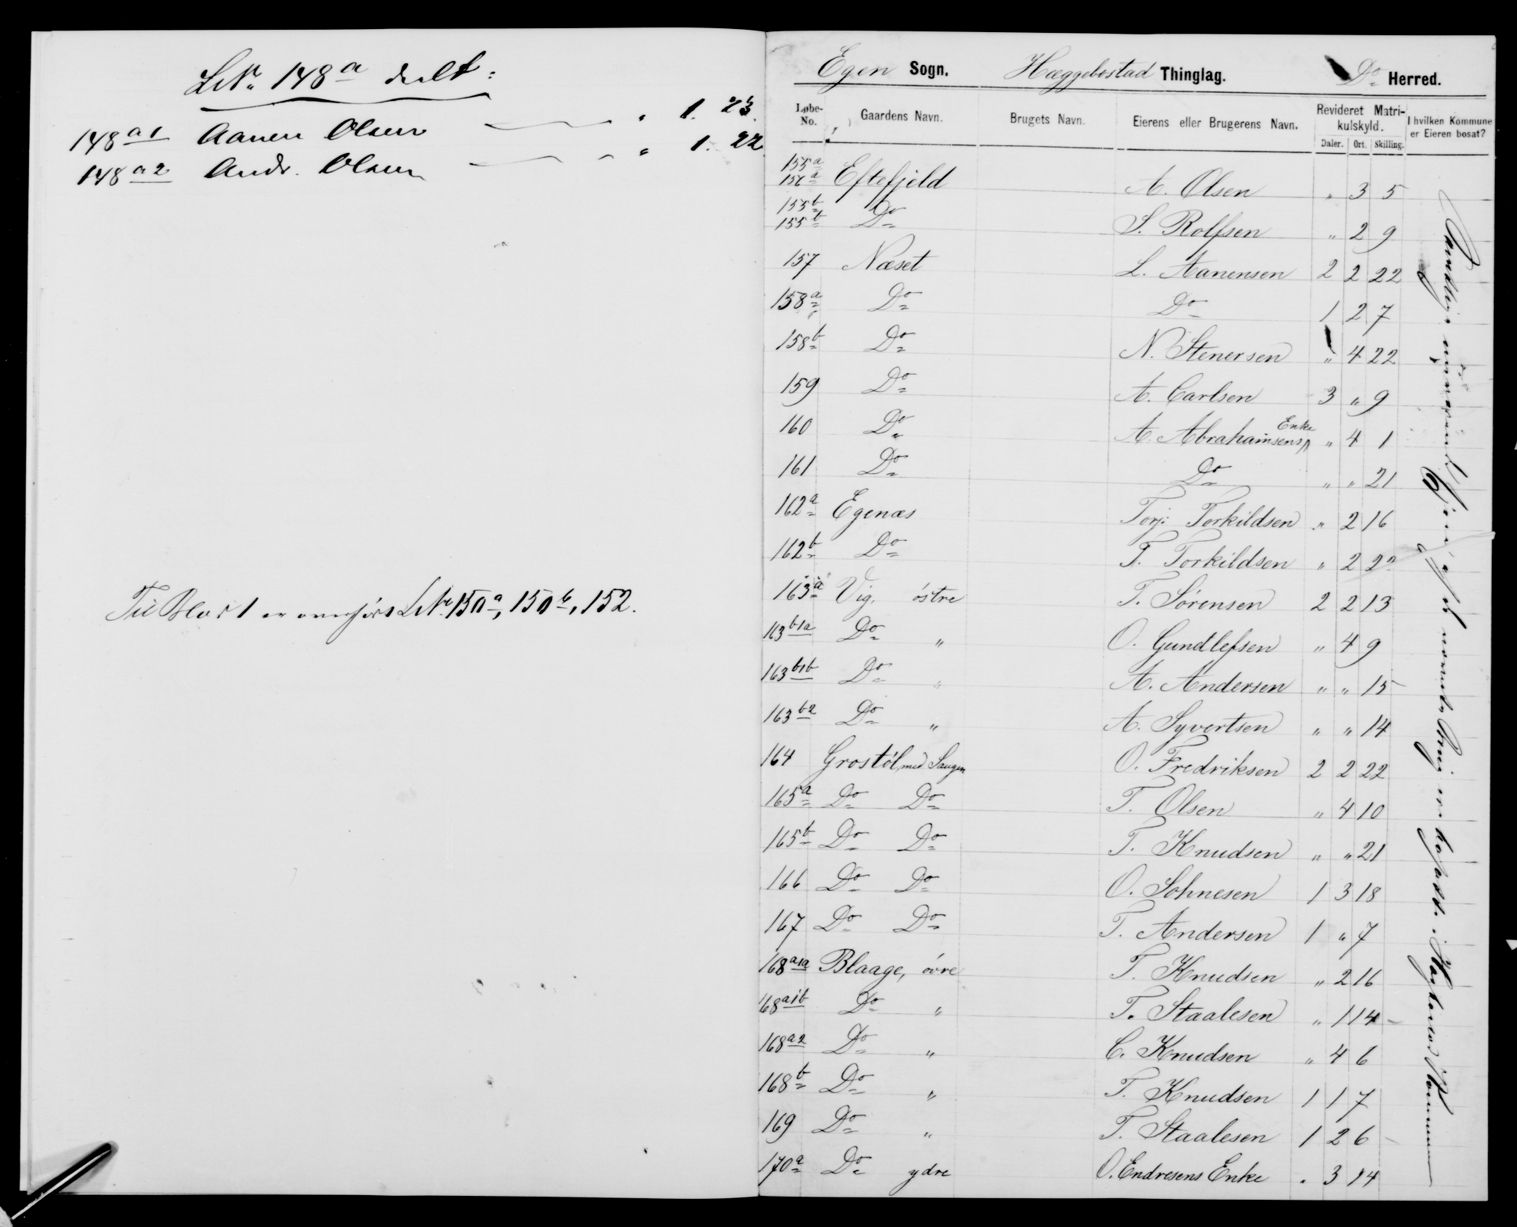 LNr. 148a delt:
148 a1 Aanen Olsen " 1. 23.
148 a2 Andr. Olsen " 1. 22
LNr 150a, 150b, 152.
Egen Sogn. Hæggebostad Thinglag. Do Herred.
Løbe-No. Gaardens Navn. Brugets Navn. Eierens eller Brugerens Navn. Revideret Matrikulskyld. I hvilken Kommune er Eieren bosat?
Daler. Ort. Skilling.
155a
156a Eftefjeld A. Olsen " 3 5
155b
155b Do S. Rolfsen " 2 9
157 Næset L. Aanensen 2 2 22
158a Do Do 1 2 7
158b Do N. Stenersen " 4 22
159 Do A. Carlsen 3 " 9
160 Do A. Abrahamsens Enke " 4 1
161 Do Do " " 21
162a Egenæs Torj. Torkildsen " 2 16
162b Do T. Torkildsen " 2 22
163a Vig, östre T. Sörensen 2 2 13
163 b1a Do " O. Gundlefsen " 4 9
163 b1b Do " A. Andersen " " 15
163 b2 Do " A. Syvertsen " " 14
164 Grostöl, med Saugen O. Fredriksen 2 2 22
165a Do Do T. Olsen " 4 10
165b Do Do T. Knudsen " " 21
166 Do Do O. Sohnesen 1 3 18
167 Do Do T. Andersen 1 " 7
168 a1a Blaage, övre T. Knudsen " 2 16
168 a1b Do " T. Staalesen " 1 14
168 a2 Do " C. Knudsen " 4 6
168b Do " T. Knudsen 1 1 7
169 Do " T. Staalesen 1 2 6
170a Do ydre O. Endresens Enke " 3 14